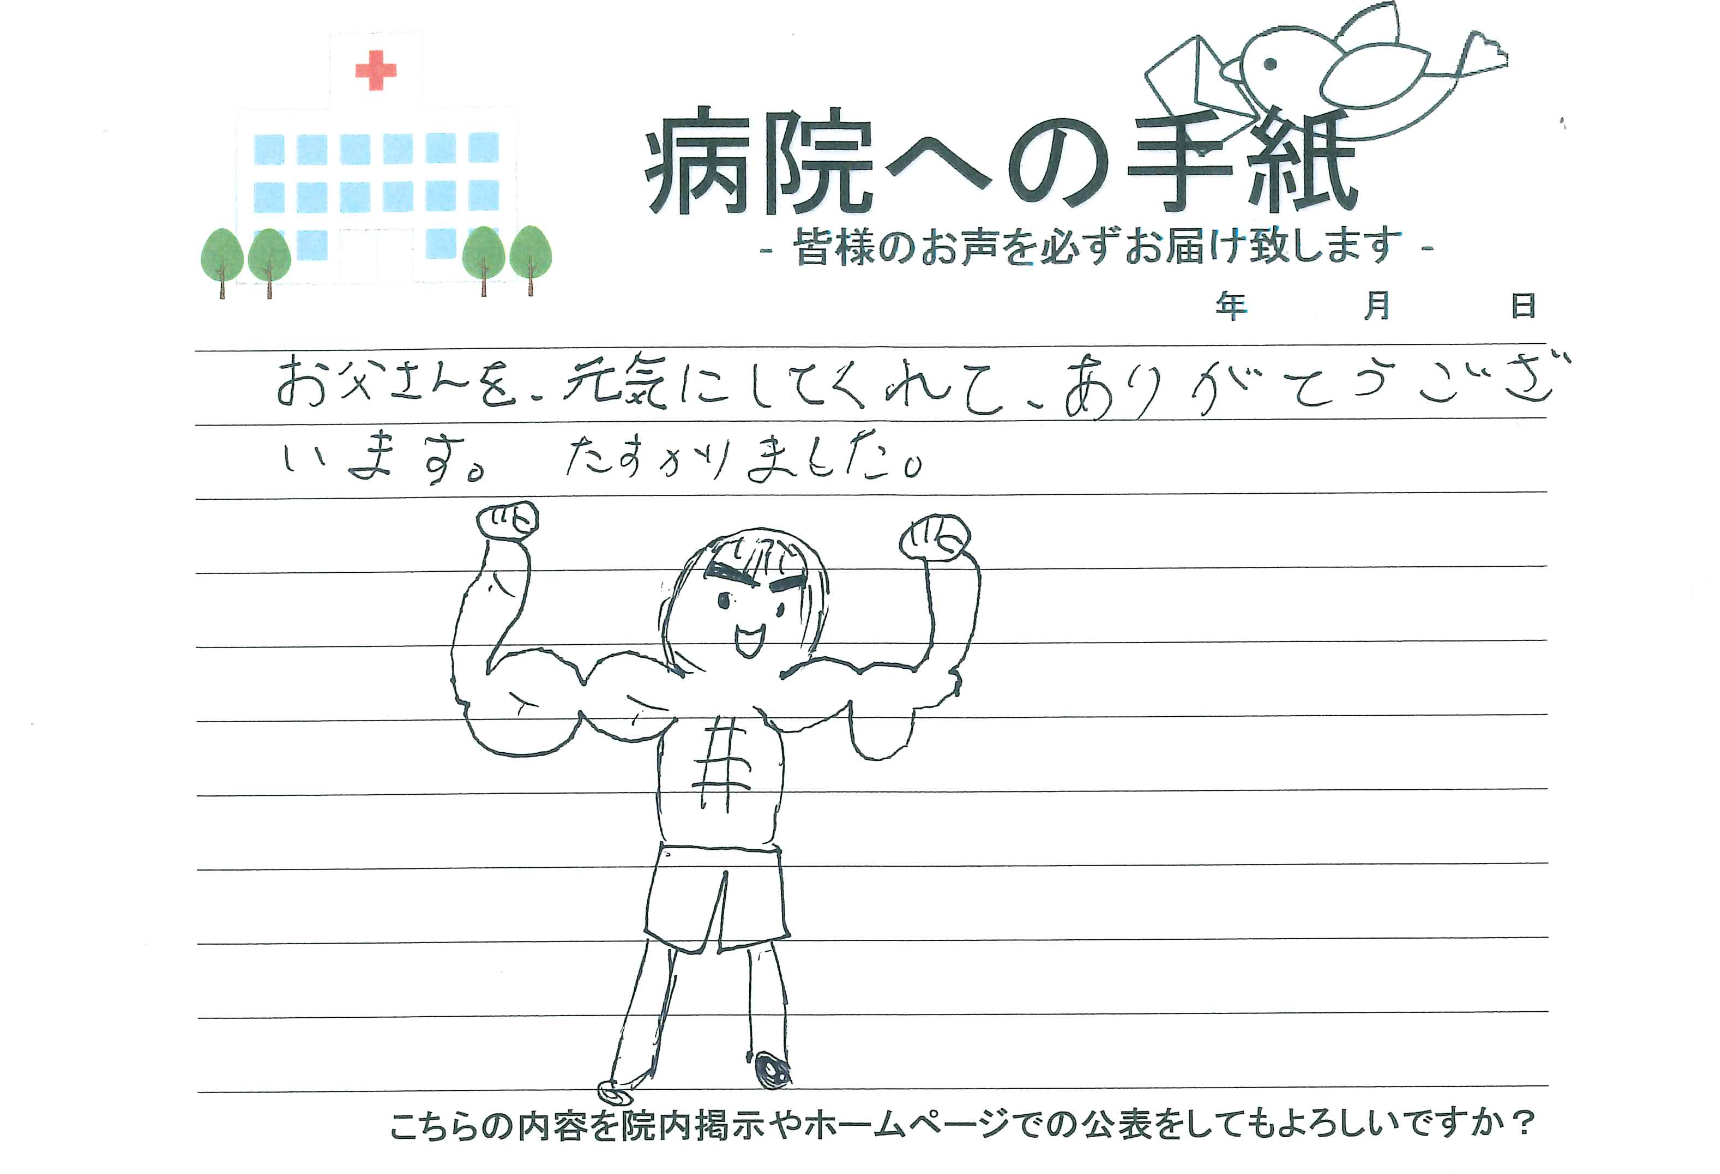 病院への手紙
- 皆様のお声を必ずお届け致します -
年 月 日
お父さんを、元気にしてくれて、ありがとうござ
います。 たすかりました。
こちらの内容を院内掲示やホームページでの公表をしてもよろしいですか？